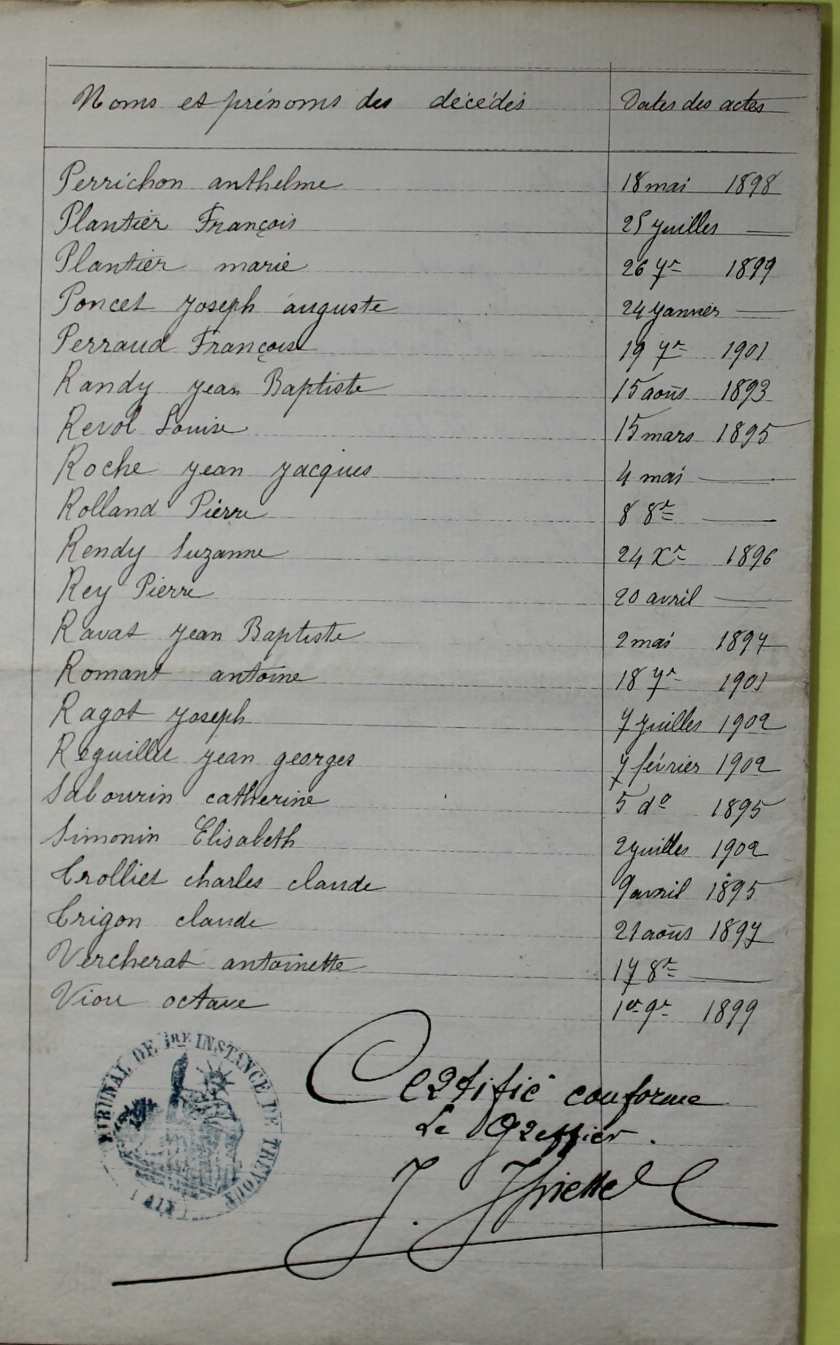 Noms et prénoms des décédés Dates des actes
Perrichon anthelme 18 mai 1898
Plantier François 25 juillet —
Plantier marie 26 7re 1899
Poncet Joseph auguste 24 Janvier —
Perraud François 19 7re 1901
Randy Jean Baptiste 15 août 1893
Revol Louise 15 mars 1895
Roche Jean Jacques 4 mai —
Rolland Pierre 8 8re —
Rendy Suzanne 24 Xre 1896
Rey Pierre 20 avril —
Ravat Jean Baptiste 2 mai 1897
Romant antoine 18 7re 1901
Ragot Joseph 7 juillet 1902
Reguillet Jean georges 7 février 1902
Sabourin catherine 5 do 1895
Simonin Elisabeth 2 juillet 1902
Trolliet charles claude 9 avril 1895
Trigon claude 21 août 1897
Vercherat antoinette 17 8re —
Viou octave 1er 9re 1899
Certifié conforme
Le Greffier.
J.
TRIBUNAL DE 1RE INSTANCE DE TRÉVOUX (AIN)